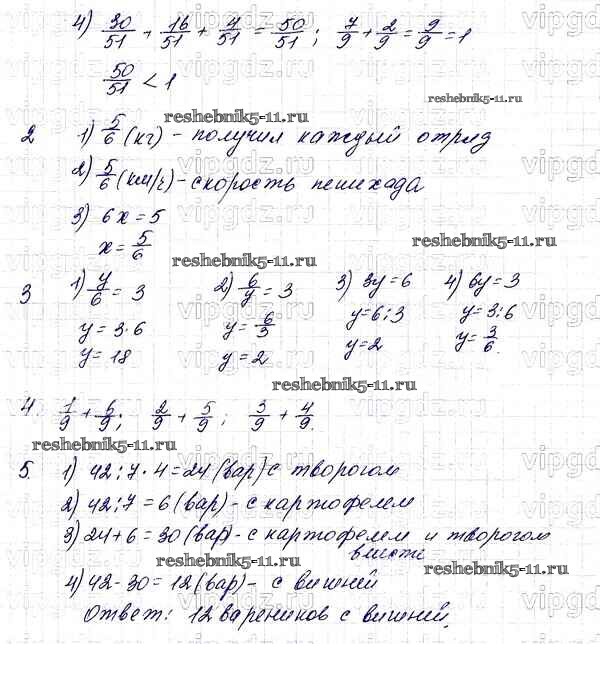 4) 30/51 + 16/51 + 4/51 = 50/51; 7/9 + 2/9 = 9/9 = 1
50/51 < 1
reshebnik5-11.ru
reshebnik5-11.ru
2 1) 5/6 (кг) - получил каждый отряд
2) 5/6 (км/ч) - скорость пешехода
3) 6x = 5
x = 5/6
reshebnik5-11.ru
reshebnik5-11.ru
3 1) y/6 = 3 2) 6/y = 3 3) 3y = 6 4) 6y = 3
y = 3·6 y = 6/3 y = 6:3 y = 3:6
y = 18 y = 2 y = 2 y = 3/6.
reshebnik5-11.ru
4. 1/9 + 6/9; 2/9 + 5/9; 3/9 + 4/9.
reshebnik5-11.ru
5. 1) 42:7·4=24 (вар) с творогом
2) 42:7 = 6 (вар) - с картофелем
3) 24+6 = 30 (вар) - с картофелем и творогом
вместе
reshebnik5-11.ru
reshebnik5-11.ru
4) 42-30 = 12 (вар) - с вишней
Ответ: 12 вареников с вишней.